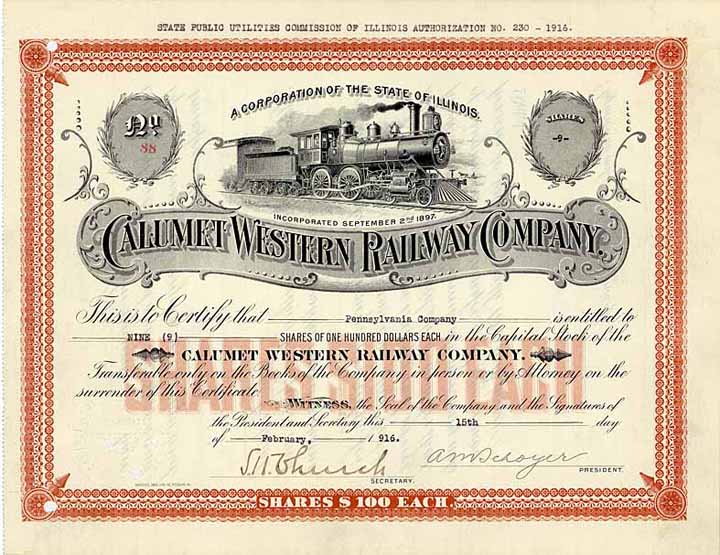 STATE PUBLIC UTILITIES COMMISSION OF ILLINOIS AUTHORIZATION NO. 230 - 1916.
A CORPORATION OF THE STATE OF ILLINOIS.
No
88
SHARES
-9-
INCORPORATED SEPTEMBER 2nd 1897.
CALUMET WESTERN RAILWAY COMPANY.
This is to Certify that Pennsylvania Company is entitled to
NINE (9) SHARES OF ONE HUNDRED DOLLARS EACH in the Capital Stock of the
CALUMET WESTERN RAILWAY COMPANY.
Transferable only on the Books of the Company in person or by Attorney on the
surrender of this Certificate
WITNESS, the Seal of the Company and the Signatures of
the President and Secretary this 15th day
of February, 1916.
SECRETARY.
PRESIDENT.
SHARES $100 EACH
SHARES $ 100 EACH.